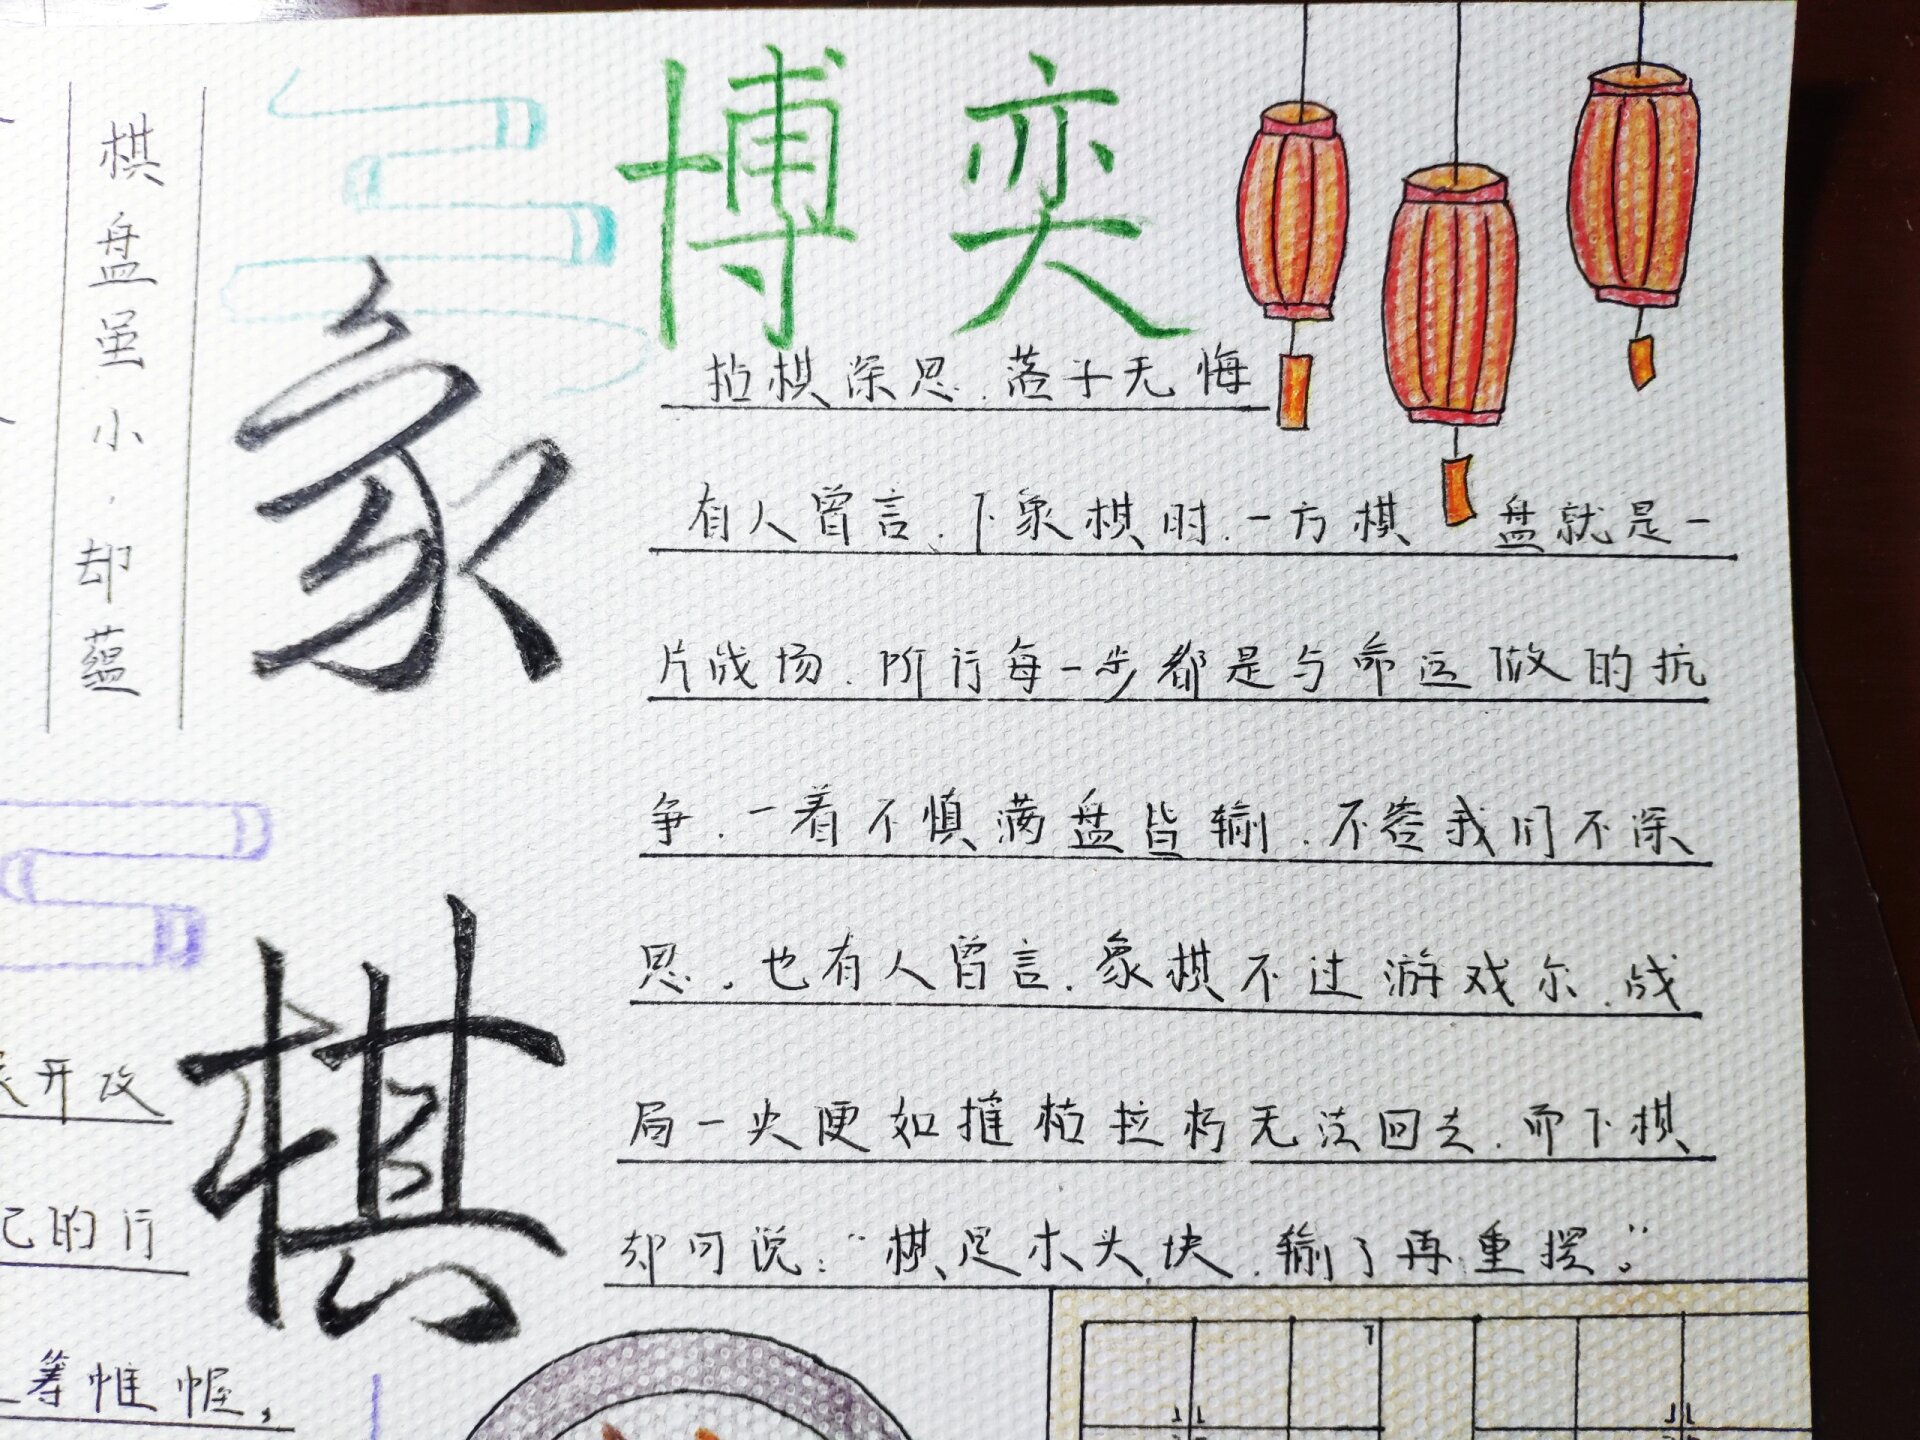 博奕
象棋
棋盘虽小,却蕴
拈棋深思,落子无悔
有人曾言,下象棋时,一方棋盘就是一
片战场,所行每一步都是与命运做的抗
争,一着不慎满盘皆输,不容我们不深
思。也有人曾言,象棋不过游戏尔,战
局一失便如摧枯拉朽无法回去,而下棋
却可说:“棋是木头块,输了再重摆。”
开改
己的行
筹帷幄,